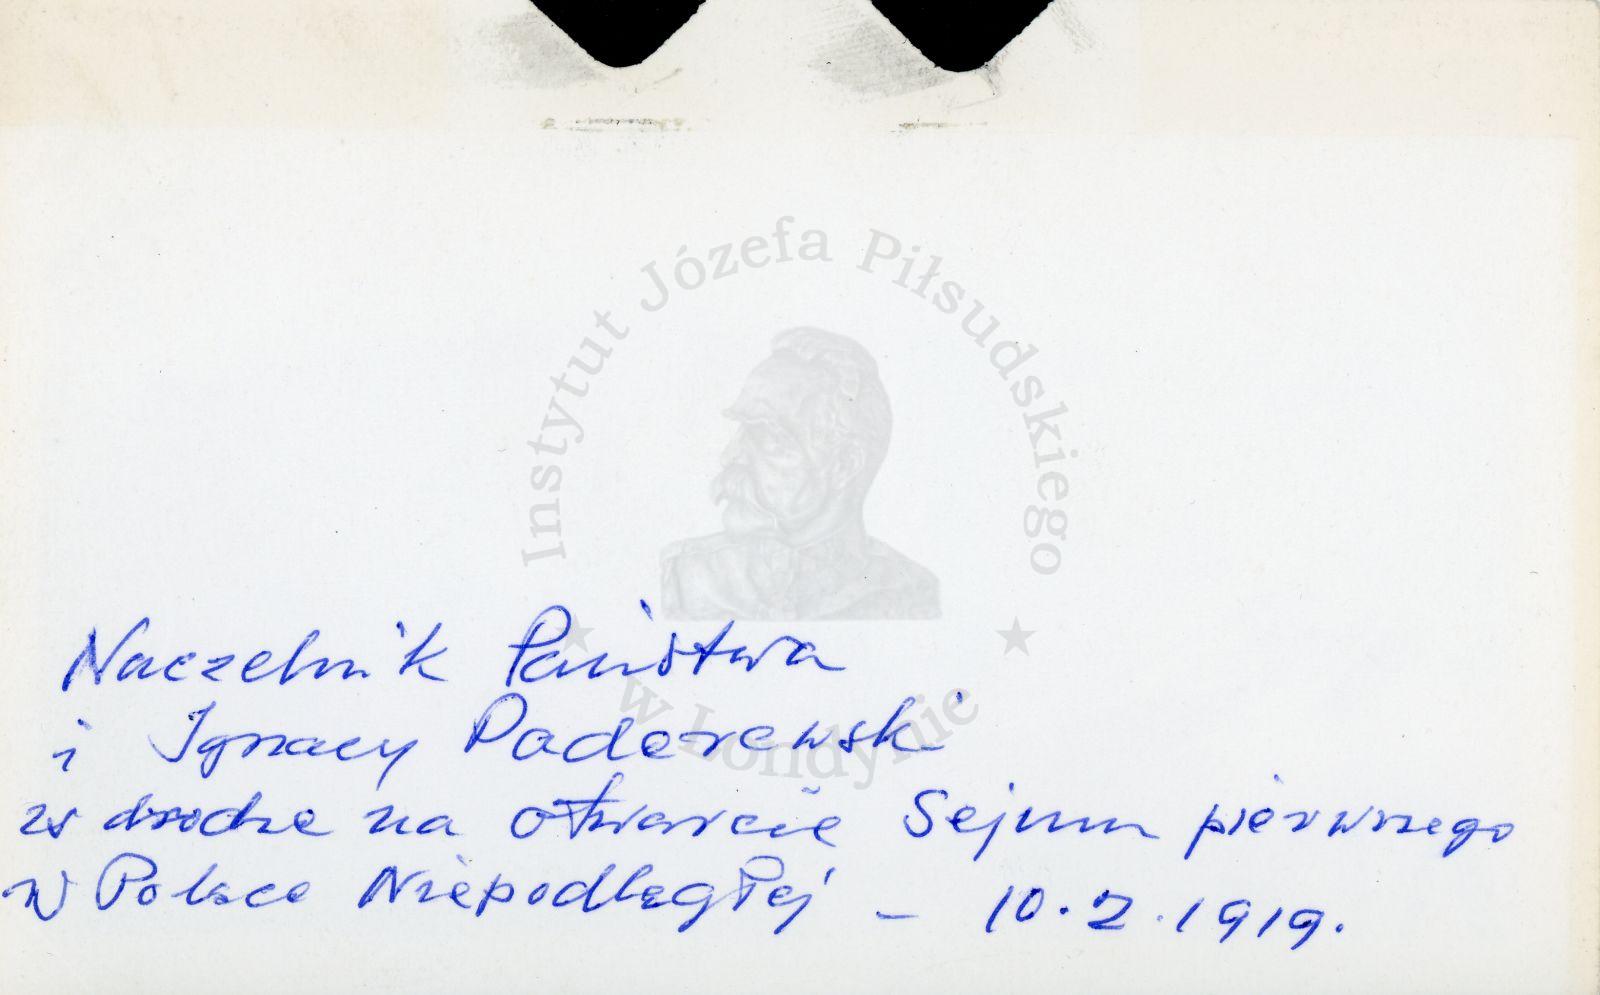 Instytut Józefa Piłsudskiego
w Londynie
Naczelnik Państwa
i Ignacy Paderewski
w drodze na otwarcie Sejmu pierwszego
w Polsce Niepodległej – 10.2.1919.